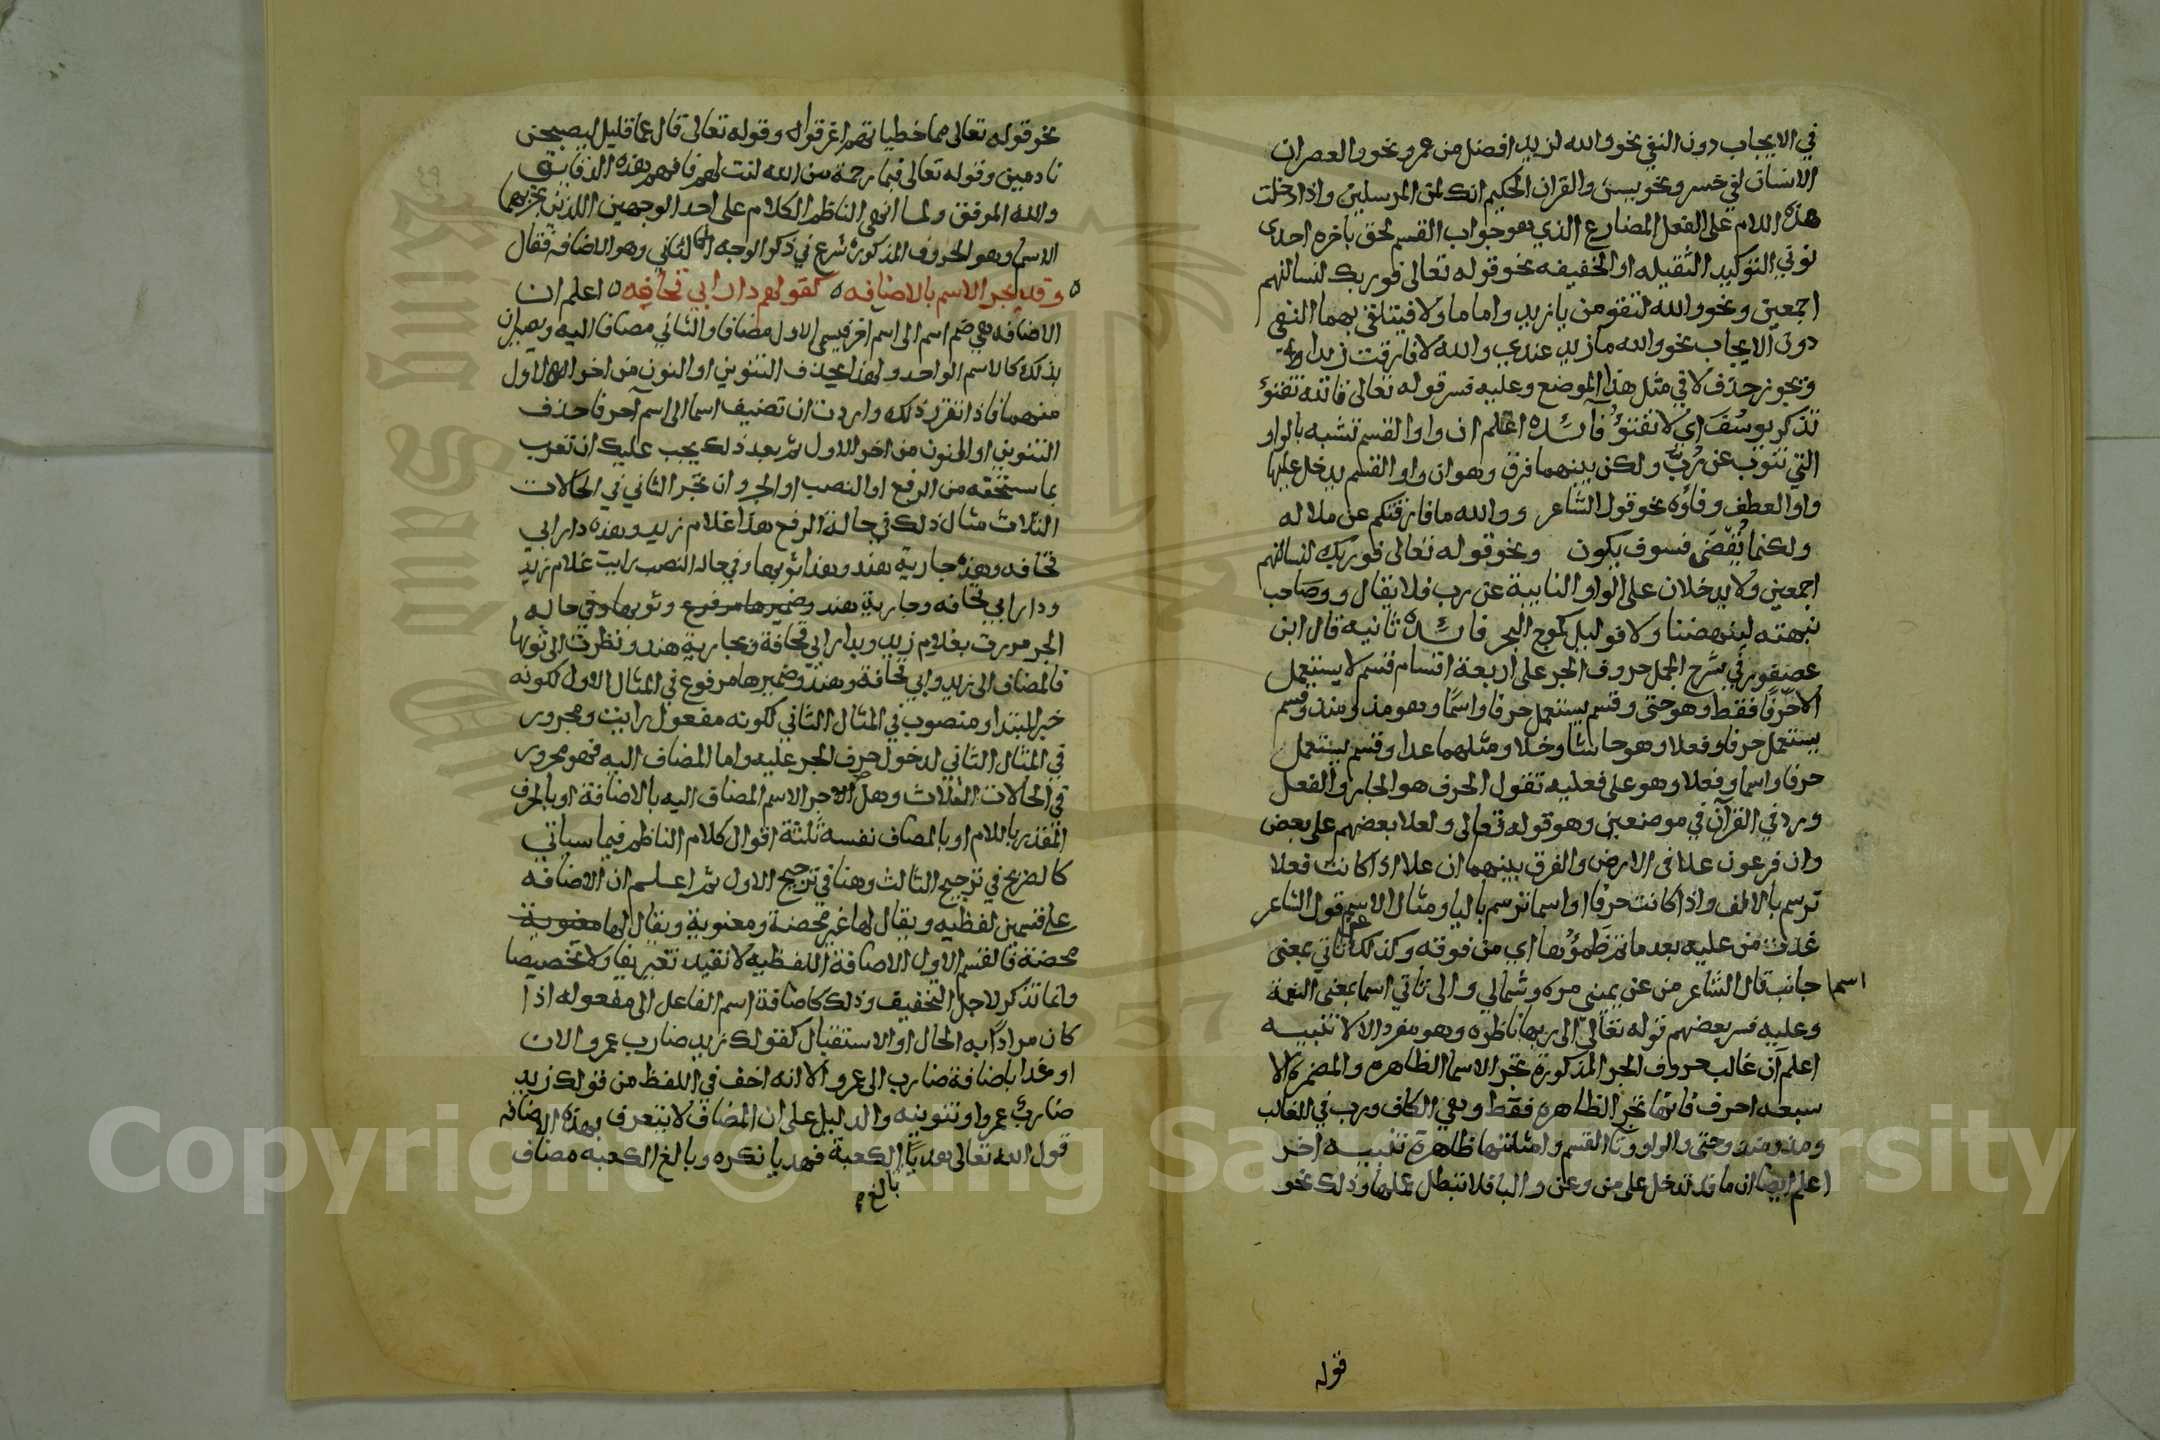 في الايجاب دون النفي نحو والله لزيد افضل من عمرو نحو والعصر ان
الانسان لفي خسر ونحو يس والقران الحكيم انك لمن المرسلين واذا دخلت
هذه اللام على الفعل المضارع الذي هو جواب القسم لحق باخره احدى
نوني التوكيد الثقيله او الخفيفه نحو قوله تعالى فوربك لنسالنهم
اجمعين ونحو والله لتقومن يا زيد واما ما ولا فيتلقى بهما النفي
دون الايجاب نحو والله ما زيد عندي والله لا فارقت زيدا
ويجوز حذف لا في مثل هذا الموضع وعليه فسر قوله تعالى تالله تفتؤ
تذكر يوسف اي لا تفتؤ فائده اعلم ان واو القسم تشبه بالواو
التي تنوب عن رب ولكن بينهما فرق وهو ان واو القسم يدخل عليها
واو العطف وفاؤه نحو قول الشاعر ووالله ما فارقتكم عن ملاله
ولكنما نقضى فسوف يكون ونحو قوله تعالى فوربك لنسالنهم
اجمعين ولا يدخلان على الواو النايبة عن رب فلا يقال ووصاحب
نبهته لينهضنا ولا فوليل كموج البحر فائده ثانيه قال ابن
عصفور في شرح الجمل حروف الجر على اربعة اقسام قسم لا يستعمل
الا حرفا فقط وهو حتى وقسم يستعمل حرفا واسما وهو مذ ومنذ وقسم
يستعمل حرفا وفعلا وهو حاشا وخلا ومثلهما عدا وقسم يستعمل
حرفا واسما وفعلا وهو على فعليه تقول الحرف هو الجار والفعل
ورد في القرآن في موضعين وهو قوله تعالى ولعلا بعضهم على بعض
وان فرعون علا فى الارض والفرق بينهما ان علا اذا كانت فعلا
ترسم بالالف واذا كانت حرفا او اسما ترسم باليا ومثال الاسم قول الشاعر
غدت من عليه بعد ما تم ظمؤها اي من فوقه وكذلك عن تاتي بمعنى
جانب قال الشاعر من عن يميني مره وشمالي والى تاتي اسما بمعنى النعمة
اسم
وعليه فسر بعضهم قوله تعالى الى ربها ناظره وهو مفرد الالا تنبيه
اعلم آن غالب حروف الجر المذكورة تجر الاسما الظاهره والمضمره الا
سبعه احرف فانها تجر الظاهره فقط وهي الكاف ورب في الغالب
ومذ ومنذ وحتى والواو وتا القسم وامثلتها ظاهرة تنبيه اخر
اعلم ايضا ان ما قد تدخل على من وعن والبا فلا تبطل عملها وذلك نحو
قوله
نحو قوله تعالى مما خطياتهم اغرقوا وقوله تعالى قال عما قليل ليصبحن
نادمين وقوله تعالى فبما رحمة من الله لنت لهم فافهم هذه الدقايق
والله الموفق ولما انهى الناظم الكلام على احد الوجهين اللذين يجر بهما
الاسم وهو الحروف المذكوره شرع في ذكر الوجه الثاني وهو الاضافه فقال
وقد يجر الاسم بالاضافه كقولهم دار ابي قحافه اعلم ان
الاضافه هي ضم اسم الى اسم اخر فيسمى الاول مضافا والثاني مضافا اليه ويصيران
بذلك كالاسم الواحد ولهذا يحذف التنوين او النون من اخر الاول
منهما فاذا تقرر ذلك واردت ان تضيف اسما الى اسم آخر فاحذف
التنوين او النون من اخر الاول ثم بعد ذلك يجب عليك ان تعرب
بما يستحقه من الرفع او النصب او الجر وان تجر الثاني في الحالات
الثلاث مثال ذلك في حالة الرفع هذا غلام زيد وهذه دار ابي
قحافه وهذه جارية هند وهذا ثوبها وفي حاله النصب رايت غلام زيد
ودار ابي قحافه وجارية هند وضميرها مرفوع وثوبها وفي حاله
الجر مررت بغلام زيد وبدار ابي قحافة وبجارية هند ونظرت الى ثوبها
فالمضاف الى زيد وابي قحافة وهند وضميرها مرفوع في المثال الاول لكونه
خبر المبتدا ومنصوب في المثال الثاني لكونه مفعول رايت ومجرور
في المثال الثاني لدخول حرف الجر عليه واما المضاف اليه فهو مجرور
في الحالات الثلاث وهل جر الاسم المضاف اليه بالاضافة او بالحرف
المقدر باللام او بالمضاف نفسه ثلثة اقوال كلام الناظم فيما سياتي
كالصريح في ترجيح الثالث وهنا في ترجيح الاول ثم اعلم ان الاضافه
على قسمين لفظيه ويقال لها غير محضة ومعنوية ويقال لها معنوية
محضة فالقسم الاول الاضافة اللفظيه لا تفيد تعريفا ولا تخصيصا
وانما تذكر لاجل التخفيف وذلك كاضافة اسم الفاعل الى مفعوله اذا
كان مرادا به الحال او الاستقبال كقولك زيد ضارب عمرو الان
او غدا باضافة ضارب الى عمرو الا انه اخف في اللفظ من قولك زيد
ضارب عمروا وتنوينه والدليل على ان المضاف لا يتعرف بهذه الاضافه
قول الله تعالى هديا بالغ الكعبة فهديا نكره وبالغ الكعبه مضاف
بالغ